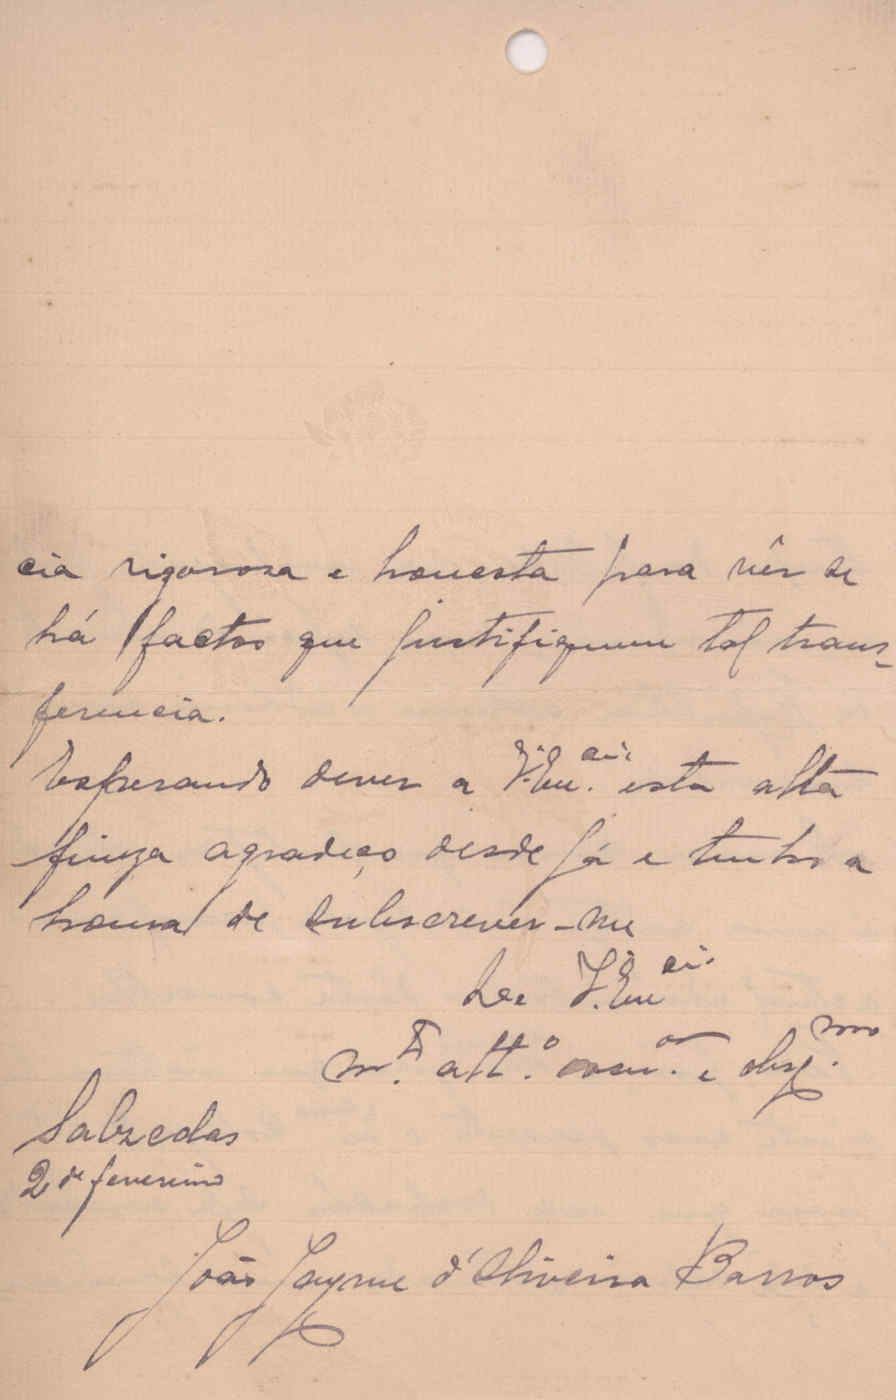 cia rigorosa e honesta para vêr se
há factos que justifiquem tal trans-
ferencia.
Esperando dever a V. Ex.cia esta alta
fineza agradeço desde já e tenho a
honra de subscrever-me
De V. Ex.cia
m.to att.o e obrg.mo
Sabzedas
2 de fevereiro
João Jayme d'Oliveira Barros